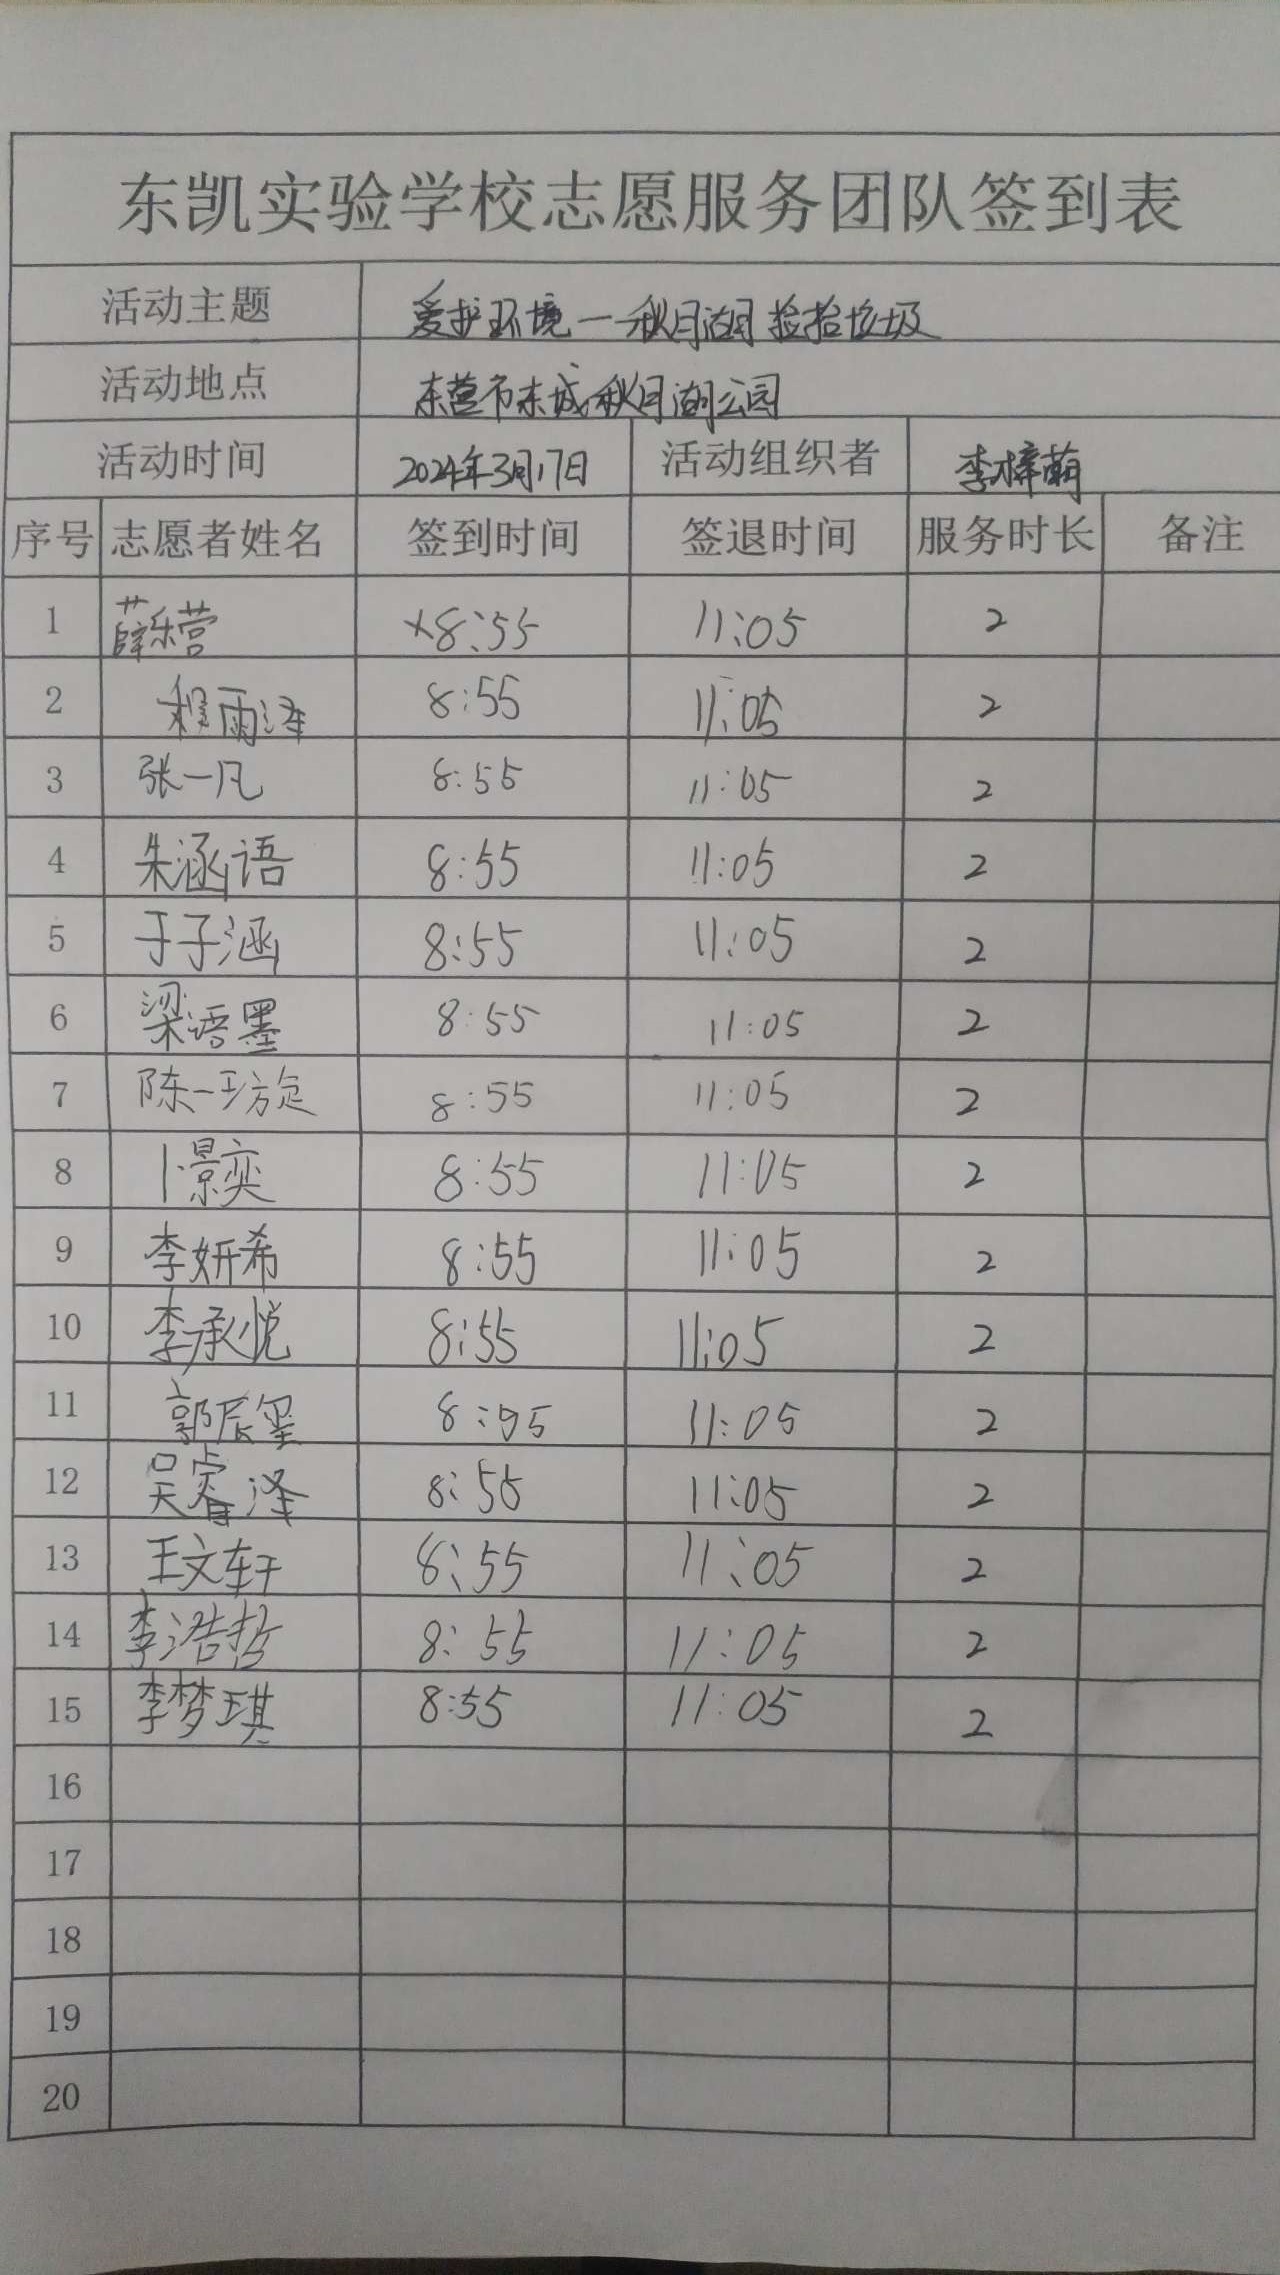 东凯实验学校志愿服务团队签到表
活动主题 爱护环境一一秋月湖捡拾垃圾
活动地点 东营市东城秋月湖公园
活动时间 2024年3月17日 活动组织者 李梓萌
序号 志愿者姓名 签到时间 签退时间 服务时长 备注
1 薛乐营 8:55 11:05 2
2 程雨泽 8:55 11:05 2
3 张一凡 8:55 11:05 2
4 朱涵语 8:55 11:05 2
5 于子涵 8:55 11:05 2
6 梁语墨 8:55 11:05 2
7 陈一璇 8:55 11:05 2
8 卜景奕 8:55 11:05 2
9 李妍希 8:55 11:05 2
10 李承悦 8:55 11:05 2
11 郭辰玺 8:55 11:05 2
12 吴睿泽 8:55 11:05 2
13 王文轩 8:55 11:05 2
14 李浩哲 8:55 11:05 2
15 李梦琪 8:55 11:05 2
16
17
18
19
20